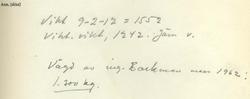 Ann. (sida)
Vikt 9-2-12 = 1552
Vikt. vikt, 1242. Järn v.
Vägd av ing. Backman mars 1962:
1.300 kg.